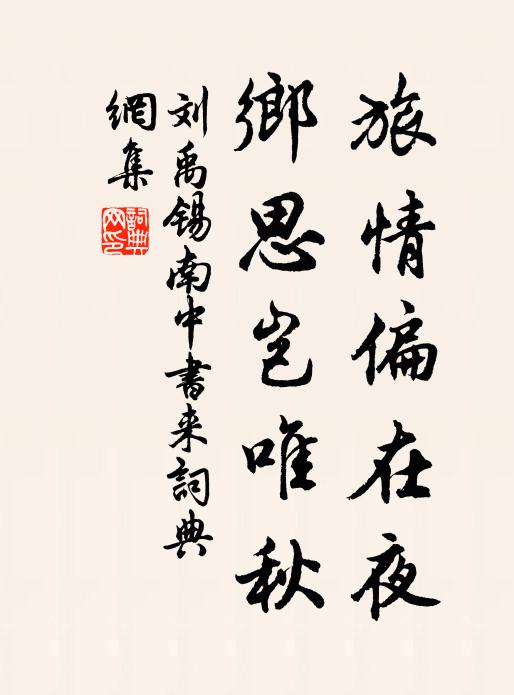 旅情偏在夜
鄉思豈唯秋
刘禹锡南中書来詞典
網集
詞典網印